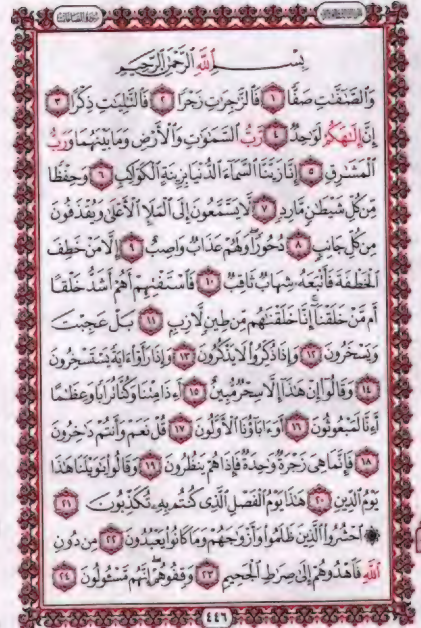 سورة الصافات
بِسْمِ اللَّهِ الرَّحْمَٰنِ الرَّحِيمِ
وَالصَّٰٓفَّٰتِ صَفًّا ١ فَالزَّٰجِرَٰتِ زَجْرًا ٢ فَالتَّٰلِيَٰتِ ذِكْرًا ٣
إِنَّ إِلَٰهَكُمْ لَوَٰحِدٌ ٤ رَّبُّ السَّمَٰوَٰتِ وَالْأَرْضِ وَمَا بَيْنَهُمَا وَرَبُّ
الْمَشَٰرِقِ ٥ إِنَّا زَيَّنَّا السَّمَآءَ الدُّنْيَا بِزِينَةٍ الْكَوَاكِبِ ٦ وَحِفْظًا
مِّن كُلِّ شَيْطَٰنٍ مَّارِدٍ ٧ لَّا يَسَّمَّعُونَ إِلَى الْمَلَإِ الْأَعْلَىٰ وَيُقْذَفُونَ
مِن كُلِّ جَانِبٍ ٨ دُحُورًا وَلَهُمْ عَذَابٌ وَاصِبٌ ٩ إِلَّا مَنْ خَطِفَ
الْخَطْفَةَ فَأَتْبَعَهُۥ شِهَابٌ ثَاقِبٌ ١٠ فَاسْتَفْتِهِمْ أَهُمْ أَشَدُّ خَلْقًا
أَم مَّنْ خَلَقْنَآ إِنَّا خَلَقْنَٰهُم مِّن طِينٍ لَّازِبٍ ١١ بَلْ عَجِبْتَ
وَيَسْخَرُونَ ١٢ وَإِذَا ذُكِّرُوا لَا يَذْكُرُونَ ١٣ وَإِذَا رَأَوْا ءَايَةً يَسْتَسْخِرُونَ
١٤ وَقَالُوٓا إِنْ هَٰذَآ إِلَّا سِحْرٌ مُّبِينٌ ١٥ أَءِذَا مِتْنَا وَكُنَّا تُرَابًا وَعِظَٰمًا
أَءِنَّا لَمَبْعُوثُونَ ١٦ أَوَءَابَآؤُنَا الْأَوَّلُونَ ١٧ قُلْ نَعَمْ وَأَنتُمْ دَٰخِرُونَ
١٨ فَإِنَّمَا هِيَ زَجْرَةٌ وَٰحِدَةٌ فَإِذَا هُمْ يَنظُرُونَ ١٩ وَقَالُوا يَٰوَيْلَنَا هَٰذَا
يَوْمُ الدِّينِ ٢٠ هَٰذَا يَوْمُ الْفَصْلِ الَّذِي كُنتُم بِهِۦ تُكَذِّبُونَ ٢١
۞ احْشُرُوا الَّذِينَ ظَلَمُوا وَأَزْوَٰجَهُمْ وَمَا كَانُوا يَعْبُدُونَ ٢٢ مِن دُونِ
اللَّهِ فَاهْدُوهُمْ إِلَىٰ صِرَٰطِ الْجَحِيمِ ٢٣ وَقِفُوهُمْ إِنَّهُم مَّسْـُٔولُونَ ٢٤
٤٤٦